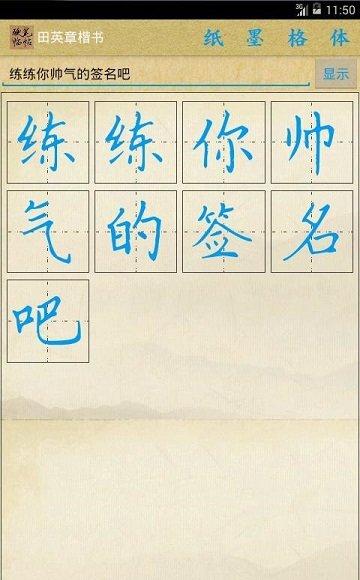 3G 11:50
硬笔临帖 田英章楷书 纸 墨 格 体
练练你帅气的签名吧 显示
练练你帅
气的签名
吧